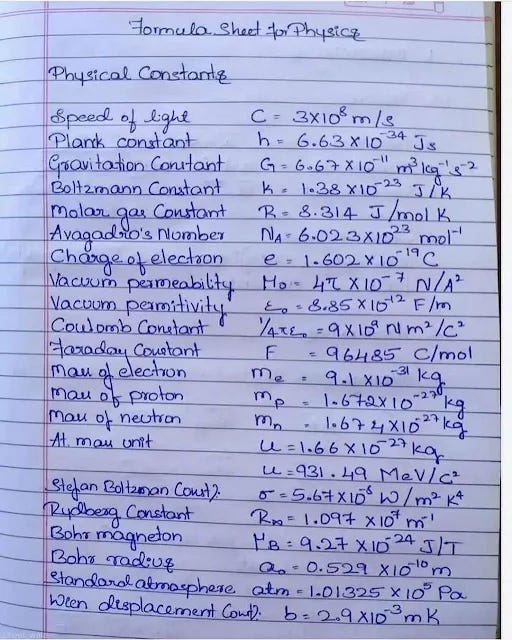 Formula Sheet for Physics
Physical Constants
Speed of light C = 3×10⁸ m/s
Plank constant h = 6.63 × 10⁻³⁴ Js
Gravitation Constant G = 6.67 × 10⁻¹¹ m³ kg⁻¹ s⁻²
Boltzmann Constant k = 1.38 × 10⁻²³ J/K
Molar gas Constant R = 8.314 J/mol K
Avagadro's Number Nᴀ = 6.023×10²³ mol⁻¹
Charge of electron e = 1.602 × 10⁻¹⁹ C
Vacuum permeability μ₀ = 4π × 10⁻⁷ N/A²
Vacuum permitivity ε₀ = 8.85 × 10⁻¹² F/m
Coulomb Constant 1/4πε₀ = 9×10⁹ Nm²/C²
Faraday Constant F = 96485 C/mol
Mass of electron mₑ = 9.1 ×10⁻³¹ kg
Mass of proton mₚ = 1.672×10⁻²⁷ kg
Mass of neutron mₙ = 1.674×10⁻²⁷ kg
At. mass unit u = 1.66 × 10⁻²⁷ kg
u = 931.49 MeV/c²
Stefan Boltzman Const). σ = 5.67×10⁻⁸ W/m² K⁴
Rydberg Constant R∞ = 1.097 × 10⁷ m⁻¹
Bohr magneton μB = 9.27 × 10⁻²⁴ J/T
Bohr radius a₀ = 0.529 × 10⁻¹⁰ m
Standard atmosphere atm = 1.01325 × 10⁵ Pa
Wien displacement Const). b = 2.9 × 10⁻³ mK